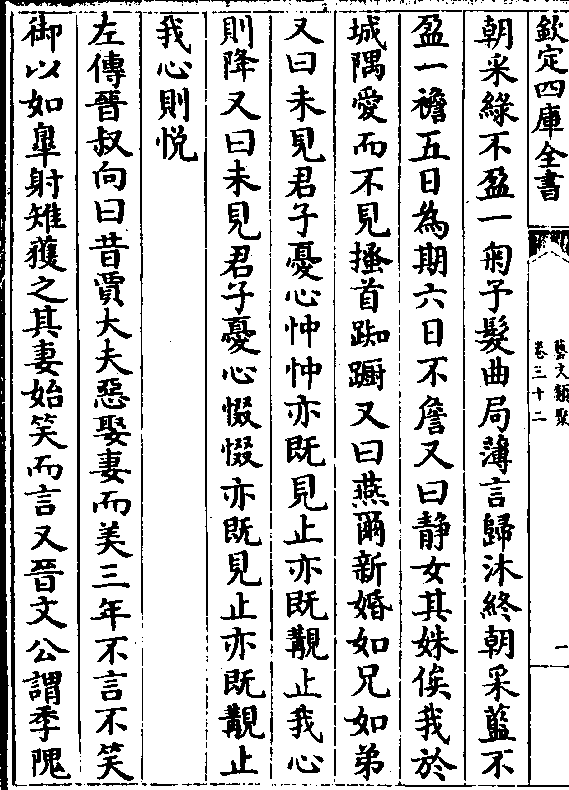 欽定四庫全書
藝文類聚
卷三十二
一
朝采綠不盈一匊予髮曲局薄言歸沐終朝采藍不
盈一襜五日為期六日不詹又曰靜女其姝俟我於
城隅愛而不見搔首踟蹰又曰燕爾新婚如兄如弟
又曰未見君子憂心忡忡亦既見止亦既覯止我心
則降又曰未見君子憂心惙惙亦既見止亦既覯止
我心則悅
左傳晉叔向曰昔賈大夫惡娶妻而美三年不言不笑
御以如臯射雉獲之其妻始笑而言又晉文公謂季隗